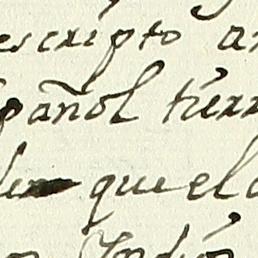 escripto a
pañol tierr
que el
Indios